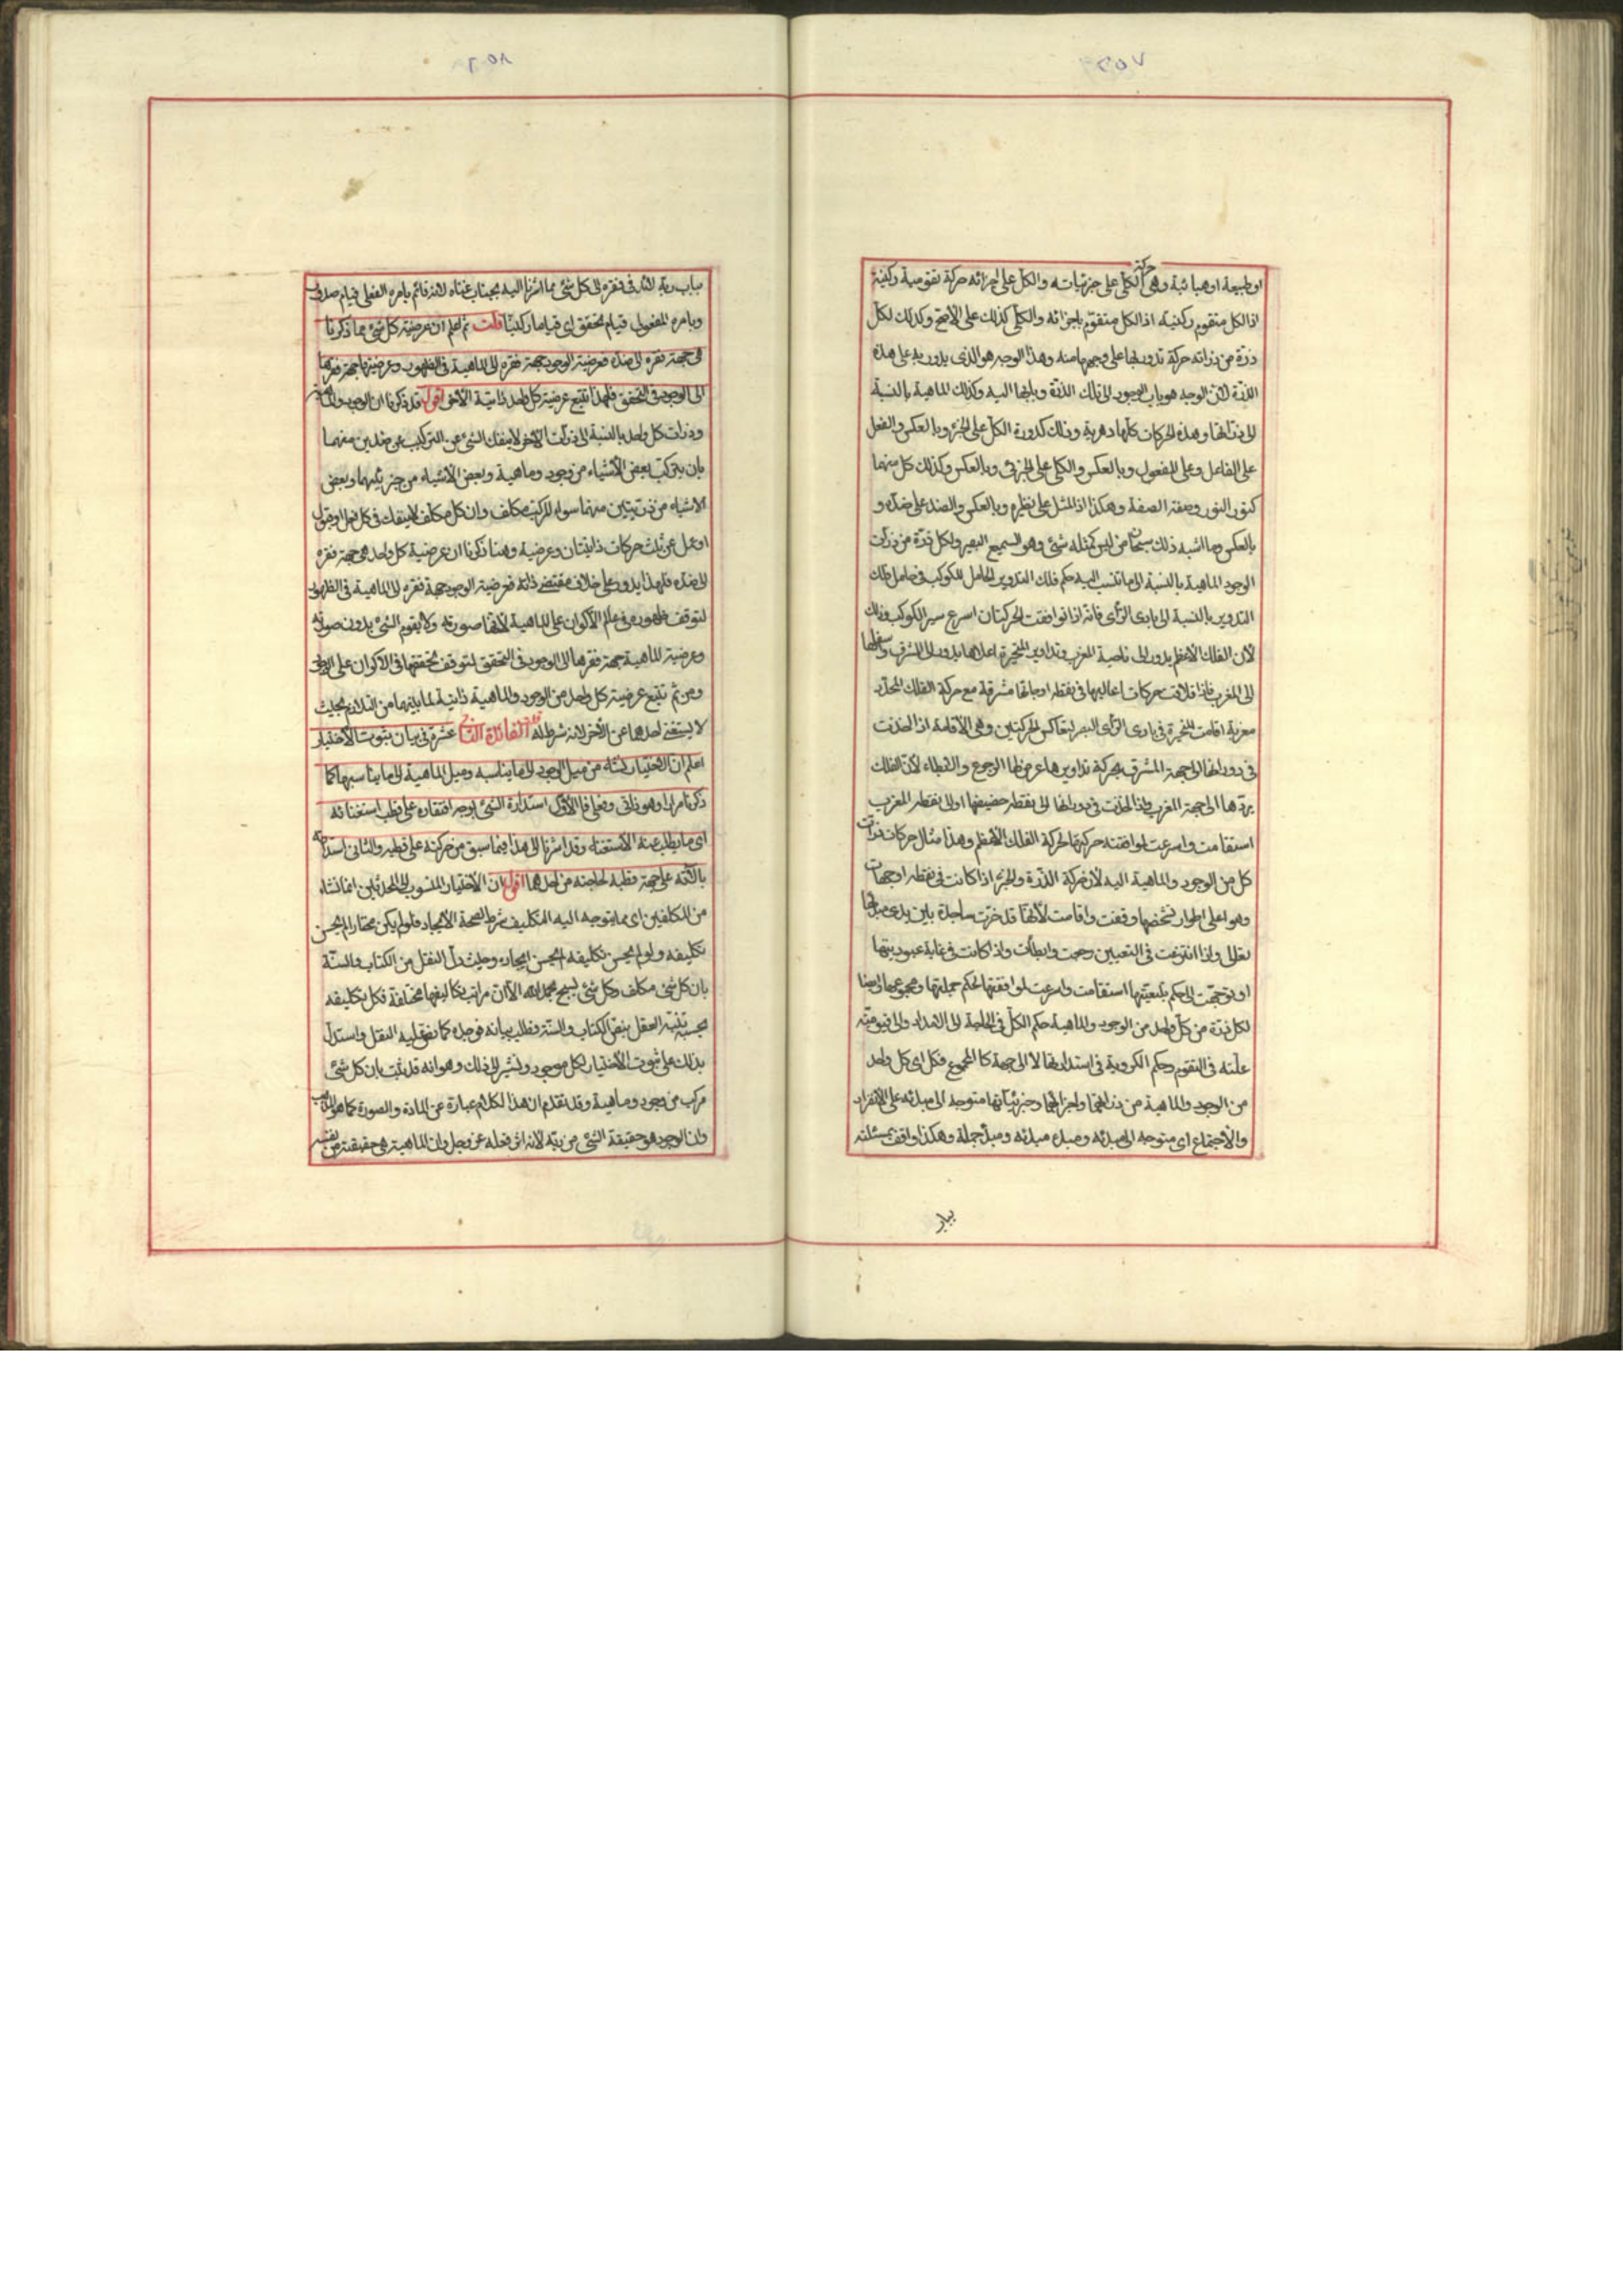 او طبيعة او هبائية وهى حركة الكلّى على جزئياته والكل على اجزائه حركة تقومية ركنية
اذ الكل متقوم ركنية اذ الكل متقوّم باجزائه والكلّى كذلك على الأصح وكذلك لكلّ
ذرّة من ذراته حركة تدور بها على وجهها منه وهذا الوجه هو الذى يدور به على هذه
الذرّة لأن الوجه هو باب الوجود الى تلك الذرّة وبابها اليه وكذلك الماهية بالنسبة
الى ذراتها وهذه الحركات كلّها دهرية وذلك كدورة الكلّ على الجزء وبالعكس والفعل
على الفاعل وعلى المفعول وبالعكس والكلى على الجزئى وبالعكس وكذلك كل منهما
كنور النور وصفة الصفة وهكذا اذ المثل على نظيره وبالعكس والضد على ضدّه و
بالعكس وما اشبه ذلك سبحان من ليس كمثله شئ وهو السميع البصير ولكل ذرّة من ذرات
الوجود الماهية بالنسبة الى ما تنسب اليه حكم فلك التدوير الحامل للكوكب فى حامل فلك
التدوير بالنسبة الى بادى الرّأى فانه اذا توافقت الحركتان اسرع سير الكوكب وذلك
لأن الفلك الاعظم يدور الى ناحية المغرب وتداوير المتحيرة اعلاها يدور الى المشرق واسفلها
الى المغرب فاذا تلاقت حركات اعاليها فى نقطه اوجاتها مشرقة مع حركة الفلك المحدّد
مغربة اقامت المتحيرة فى بادى الرّأى البصر لتعاكس الحركتين وهى الأقامة اذا اخذت
فى دورانها الى جهة المشرق بحركة تداويرها عرض لها الرجوع والابطاء لأن الفلك
يردّها الى جهة المغرب واذا اخذت فى دورانها الى نقطه حضيضها او الى نقطه المغرب
استقامت واسرعت لموافقته حركتها لحركة الفلك الأعظم وهذا مثال حركات ذرات
كل من الوجود والماهية اليه لأن حركة الذرّة والجزء اذا كانت فى نقطه اوجهات
وهو اعلى اطوار تشخصها وقفت واقامت لأنها قد خرّت ساجدة بين يدى مبدأها
تعالى واذا انتزعت فى التعيين رجعت وابطأت واذا كانت فى غاية عبوديتها
او توجهّت الى حكم تبعيتها استقامت واسرعت لموافقتها لحكم جملتها ومجموعها ايضا
لكل ذرّة من كلّ واحد من الوجود والماهية حكم الكلّ فى الحاجة الى الامداد والى قيومية
علّته فى التقوم وحكم الكروية فى استدارتها لا الى جهة كالمجموع فكل اى كل واحد
من الوجود والماهية من ذراتهما واجزائهما وجزئياتهما متوجه الى مبدئه على الانفراد
والأجتماع اى متوجه الى مبدئه ومبدء مبدئه ومبدأ جملة وهكذا واقف بمسئلته
ببار
بباب ربّه لائذ فى فقره الى كل شئ مما اشرنا اليه بجناب غناه لانه قائم بامره الفعلى قيام صدور
وبامره المفعولى قيام تحقق اى قياما ركنيا قلت ثم اعلم ان عرضية كل شئ مما ذكرنا
هى جهة فقره الى ضده فعرضية الوجود جهة فقره الى الماهية فى الظهور وعرضيتها جهة فقرها
الى الوجود فى التحقق فلهذا تتبع عرضية كل واحد ذاتية الأخر اقول قد ذكرنا ان الوجود والماهية
وذرات كل واحد بالنسبة الى ذرات الآخر لا ينفك الشئ عن التركيب من ضدين منهما
بان يتركب بعض الأشياء من وجود وماهية وبعض الأشياء من جزئيهما وبعض
الاشياء من ذرّتين منهما سواء المركب مكلف وان كل مكلف لا ينفك فى كل فعل او قول
او عمل عن ثلث حركات ذاتيتان وعرضية وهنا ذكرنا ان عرضية كل واحد هى جهة فقره
الى ضدّه فلهذا يدور على خلاف مقتضى ذاته فعرضية الوجود جهة فقره الى الماهية فى الظهور
لتوقف ظهوره فى عالم الأكوان على الماهية لأنها صورته ولا يقوم الشئ بدون صورته
وعرضية الماهية جهة فقرها الى الوجود فى التحقق لتوقف تحققها فى الاكوان على الوجود
ومن ثم تتبع عرضية كل واحد من الوجود والماهية ذاتية لما بينهما من التلازم بحيث
لا يستغنى احدهما عن الأخر لانه شرط له قلت الفائدة الثانية عشرة فى بيان ثبوت الأختيار
اعلم ان الاختيار نشأ من ميل الوجود الى ما يناسبه وميل الماهية الى ما يناسبها كما
ذكرنا مرارا وهو ذاتى وفعلى فالأوّل استدارة الشئ بوجه افتقاره على قطب استغنائه
اى ما يطلب عنه الأستغناء وقد اشرنا الى هذا فيما سبق من حركته على قطبه والثانى استدارته
بالته على جهة قطبه لحاجته من احدهما اقول ان الأختيار المنسوب الى المحدثين انما نشاء
من المكلفين اى مما يتوجه اليه التكليف شرط لصحة الأيجاد فلو لم يكن مختارا لم يحسن
تكليفه ولو لم يحسن تكليفه لم يحسن ايجاده وحيث دلّ النقل من الكتاب والسنّة
بان كل شئ مكلف وكل شئ يسبح بحمد الله الاّ ان مراتب تكاليفها مختلفة فكل تكليفه
بحسبه تنبّه العقل بنصّ الكتاب والسنّة وطلب بيانه فوجده كما نطق اليه النقل واستدلّ
بذلك على ثبوت الأختيار لكل موجود ولنشير الى ذلك وهو انه قد ثبت بان كل شئ
مركب من وجود وماهية وقد تقدم ان هذا الكلام عبارة عن المادة والصورة كما هو المذهب
وان الوجود هو حقيقة الشئ من ربّه لانه اثر فعله عز وجل وان الماهية هى حقيقته من نفسه